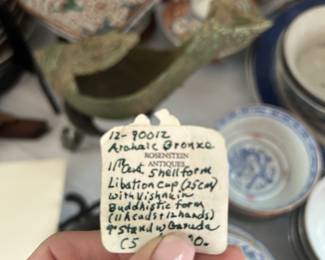 12-90012
Archaic Bronze
ROSENSTEIN
ANTIQUES
11th Cent Shell form
Libation Cup (25cm)
with Vishnu in
Buddhistic form
(11 heads + 12 hands)
+ Stand w Garuda